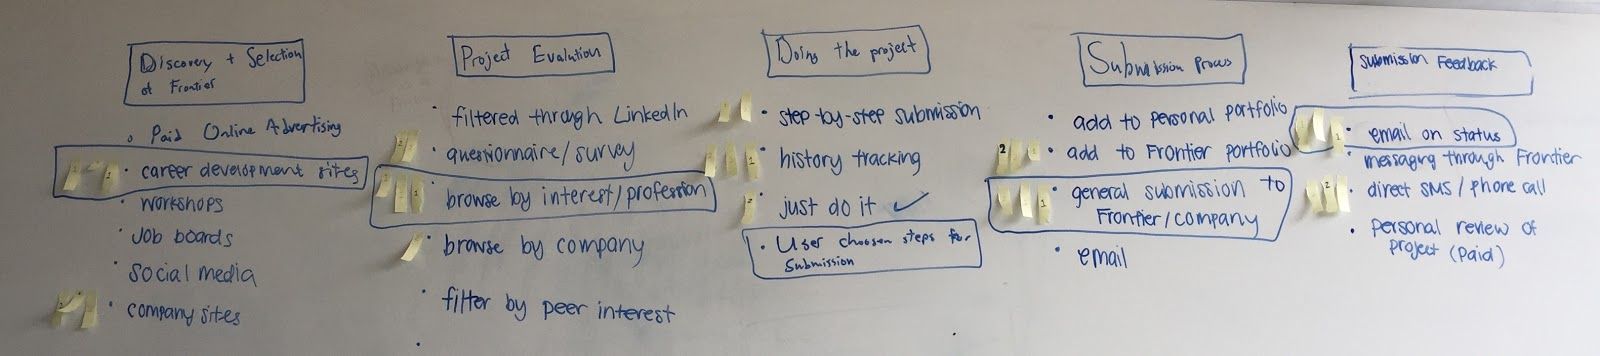 Discovery + Selection
of Frontier
Paid Online Advertising
career development sites
workshops
job boards
social media
company sites
Project Evaluation
filtered through LinkedIn
questionnaire/survey
browse by interest/profession
browse by company
filter by peer interest
Doing the project
step-by-step submission
history tracking
just do it
User choosen steps for
Submission
Submission Process
add to personal portfolio
add to Frontier portfolio
general submission to
Frontier/company
email
Submission Feedback
email on status
messaging through Frontier
direct SMS/phone call
personal review of
project (Paid)